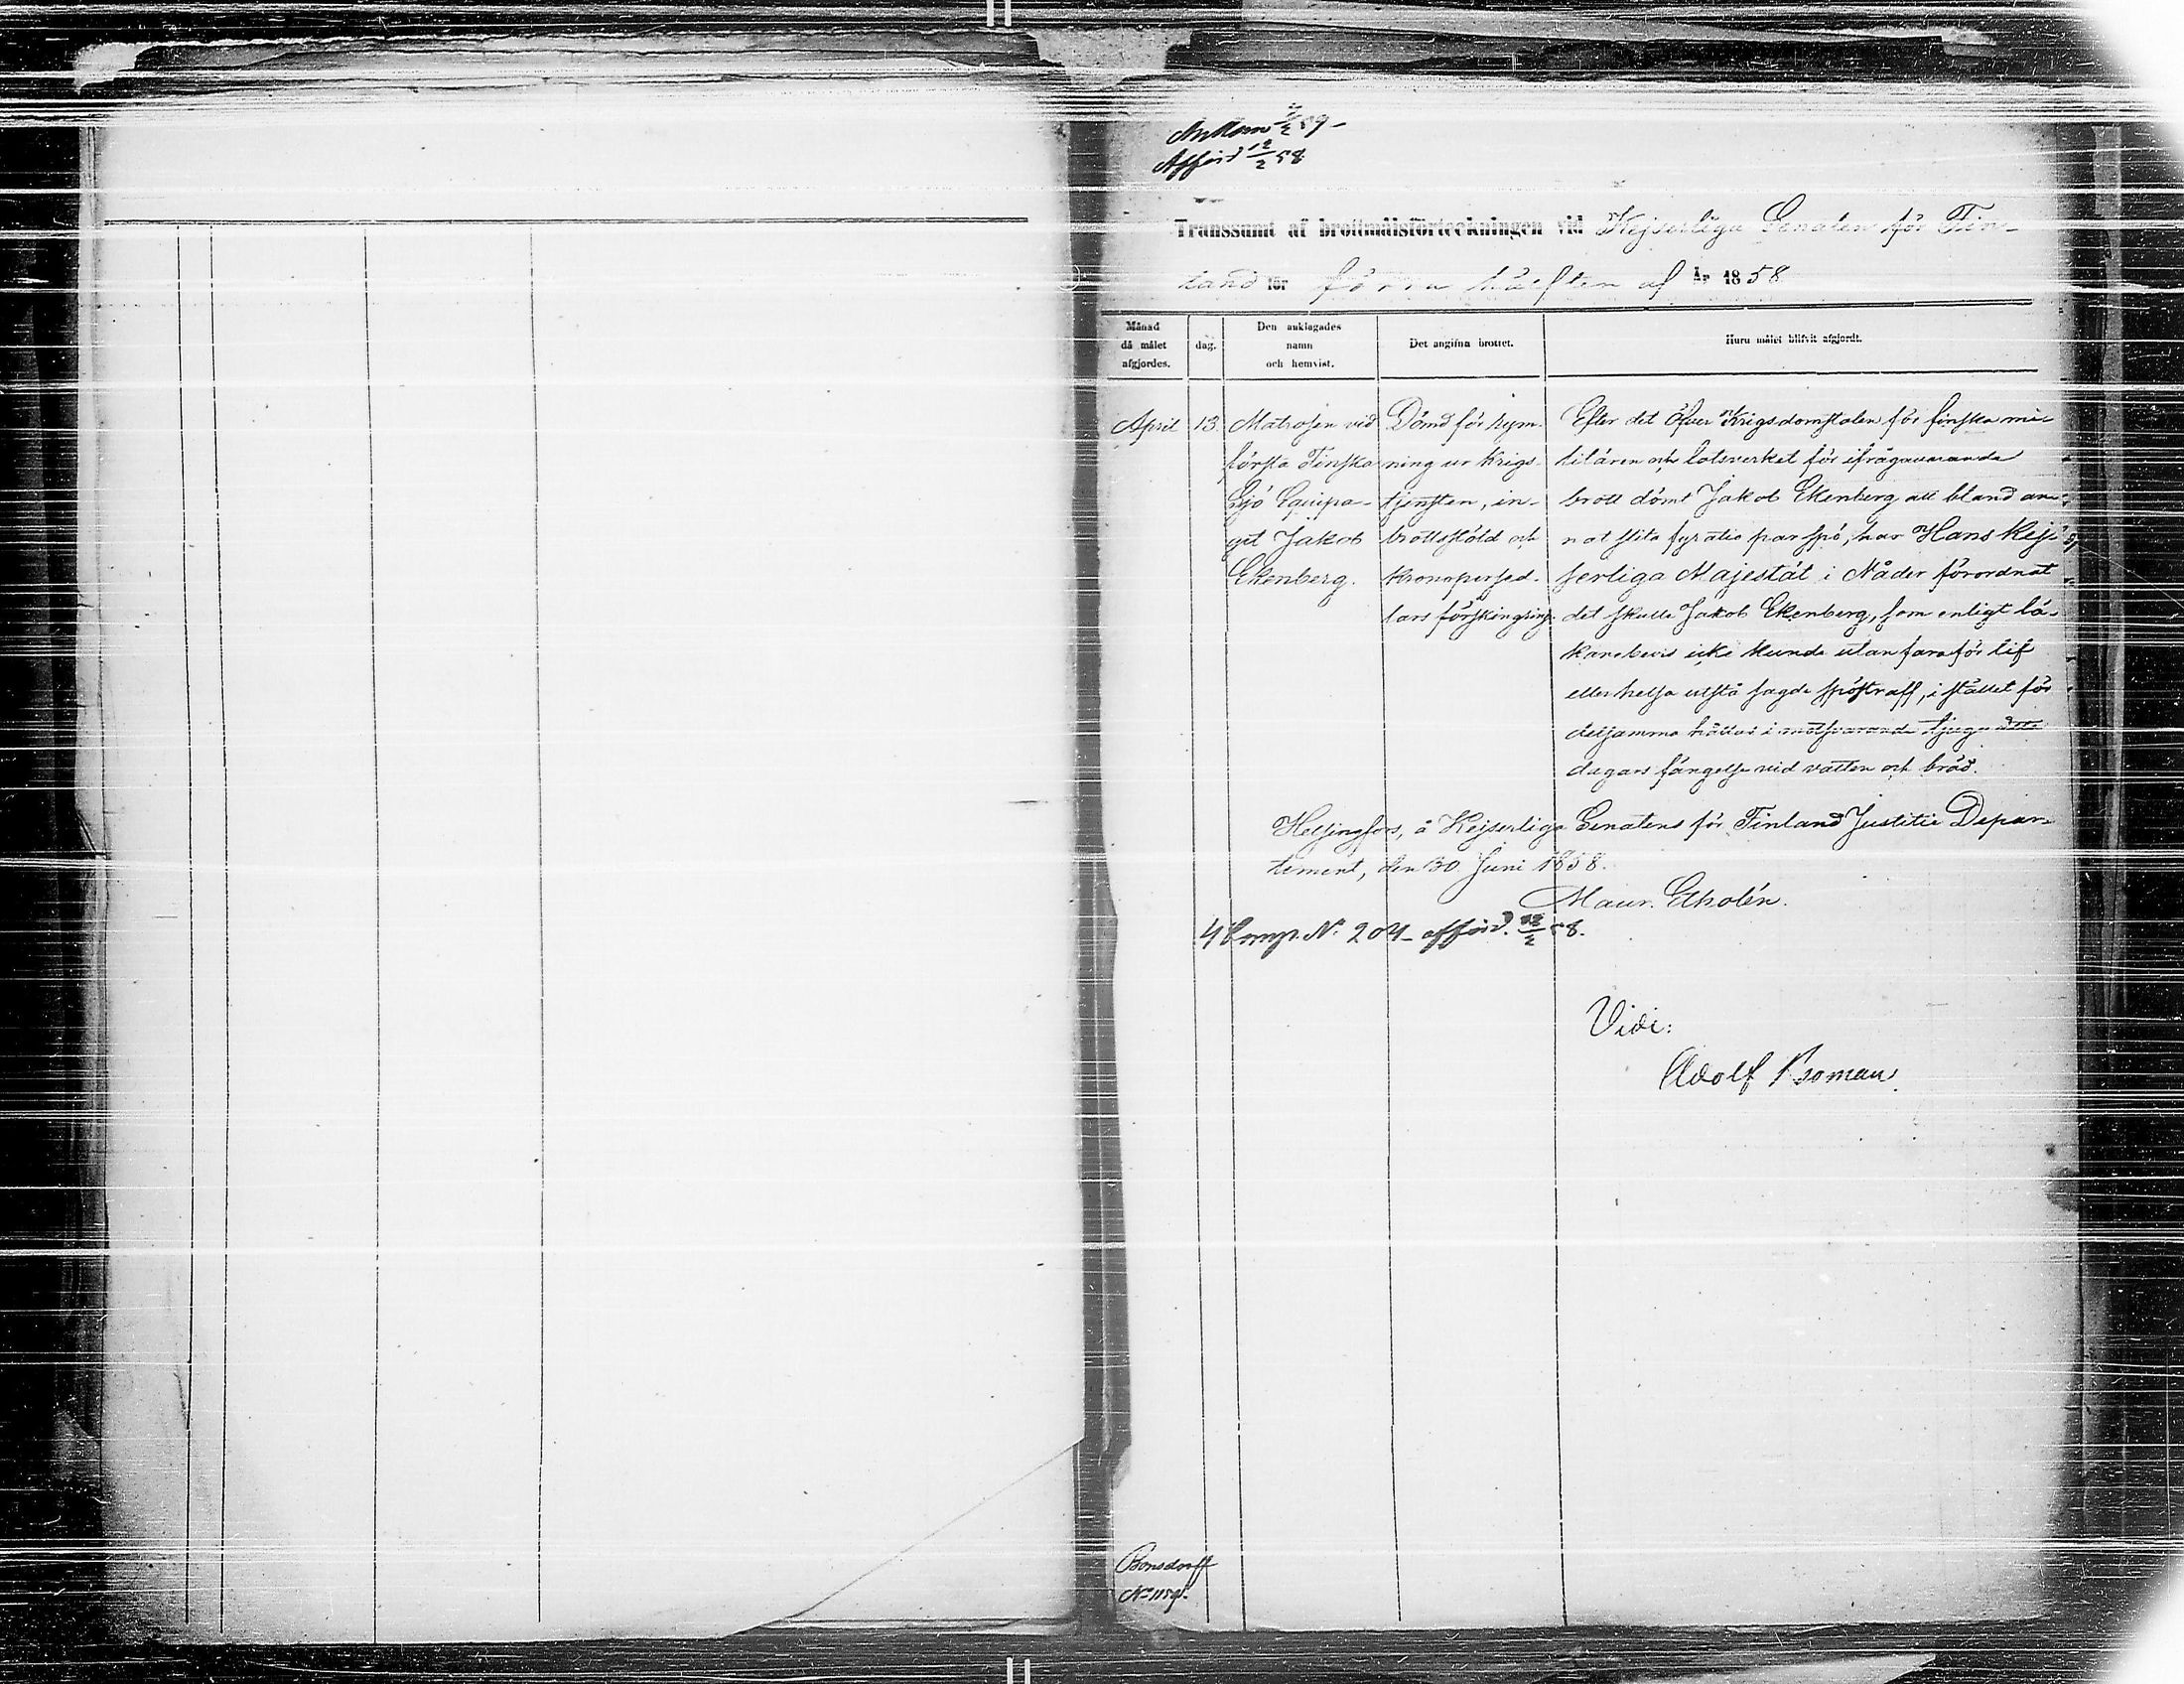 Ankom 59-
Afförd 12/2 58
Transsumt af brottmålsförteckningen vid Kejserliga Senaten för Fin-
land för förra hälften af år 1858
Månad då målet afgjordes.
dag.
Den anklagades namn och hemvist.
Det angifna brottet.
Huru målet blifvit afgjordt.
April 13 Matrosen vid Dömd för rym- Efter det Öfver Krigsdomstolen för finska mi-
första Finska ning ur krigs- litären och lotsverket för ifrågavarande
Sjö Equipa- tjensten, in- brott dömt Jakob Ekenberg att bland an-
get Jakob brottsstöld och nat slita fyratio par spö, har Hans Kej-
Ekenberg. kronopersed- serliga Majestät i Nåder förordnat
lars förskingring. det skulle Jakob Ekenberg, som enligt lä-
karebevis icke kunde utan fara för lif
eller helsa utstå sagde spöstraff, i stället för
detsamma hållas i motsvarande tjugu åtta
dagars fängelse vid vatten och bröd.
Helsingfors, å Kejserliga Senatens för Finland Justitie Depar-
tement, den 30 Juni 1858.
Maur. Etholén.
4 Comp. N. 204- afförd. 12/2 58.
Vidi:
Adolf Boman
Bonsdorff